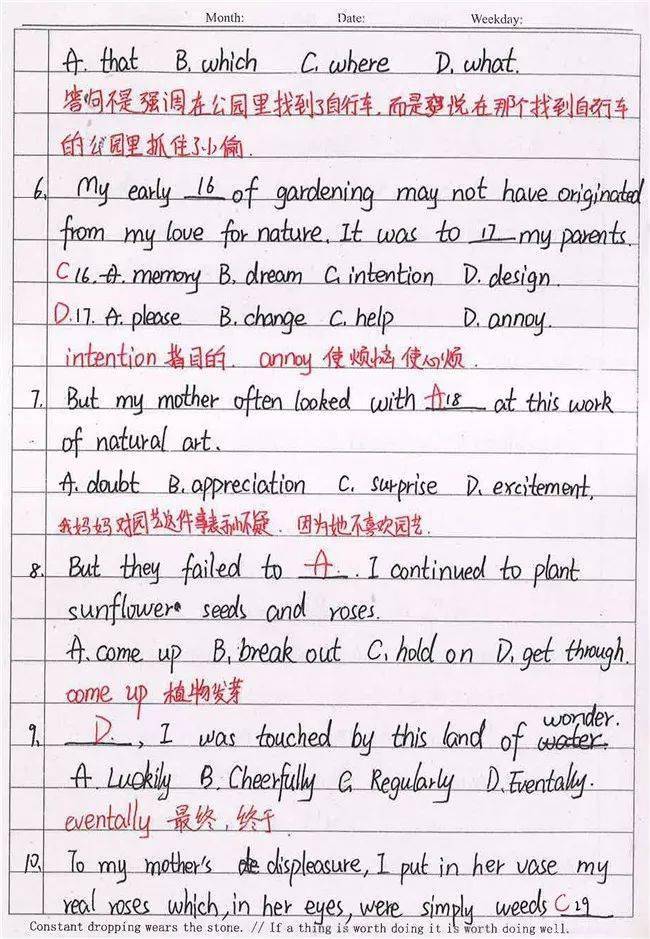 Month: Date: Weekday:
A. that B. which C. where D. what.
答问不是强调在公园里找到了自行车,而是要说在那个找到自行车
的公园里抓住了小偷.
6. My early 16 of gardening may not have originated
from my love for nature. It was to 17 my parents.
C 16. A. memory B. dream C. intention D. design.
D. 17. A. please B. change C. help D. annoy.
intention 指目的. annoy 使烦恼 使心烦.
7. But my mother often looked with A 18 at this work
of natural art.
A. doubt B. appreciation C. surprise D. excitement.
我妈妈对园艺这件事表示怀疑. 因为她不喜欢园艺.
8. But they failed to A. I continued to plant
sunflower seeds and roses.
A. come up B. break out C. hold on D. get through.
come up 植物发芽
wonder.
9. D., I was touched by this land of water.
A. Luckily B. Cheerfully C. Regularly D. Eventally.
eventally 最终,终于
10. To my mother's displeasure, I put in her vase my
real roses which, in her eyes, were simply weeds C 29
Constant dropping wears the stone. // If a thing is worth doing it is worth doing well.